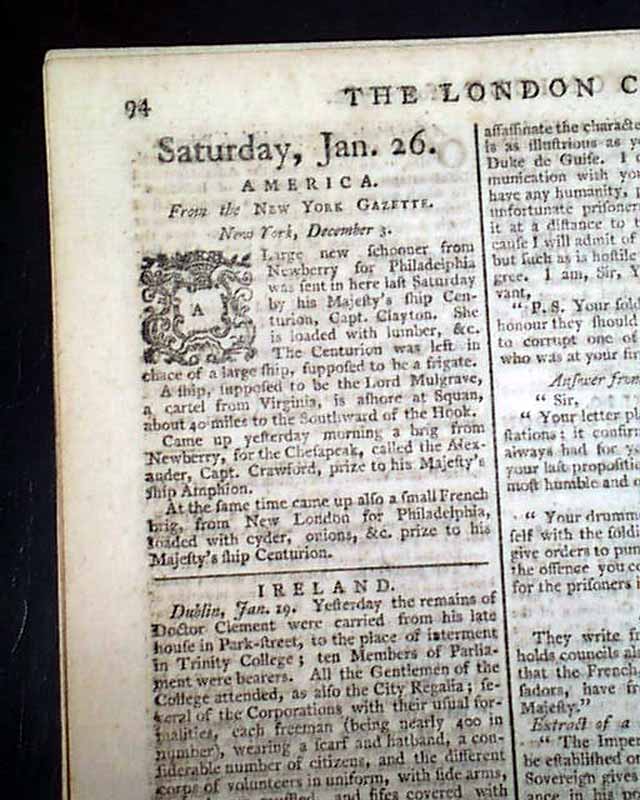 94
THE LONDON C
Saturday, Jan. 26.
AMERICA.
From the NEW YORK GAZETTE.
New York, December 3.
A Large new ſchooner from
Newberry for Philadelphia
was ſent in here laſt Saturday
by his Majeſty's ſhip Cen-
turion, Capt. Clayton. She
is loaded with lumber, &c.
The Centurion was left in
chace of a large ſhip, ſuppoſed to be a frigate.
A ſhip, ſuppoſed to be the Lord Mulgrave,
a cartel from Virginia, is aſhore at Squan,
about 40 miles to the Southward of the Hook.
Came up yeſterday morning a brig from
Newberry, for the Cheſapeak, called the Alex-
ander, Capt. Crawford, prize to his Majeſty's
ſhip Amphion.
At the ſame time came up alſo a ſmall French
brig, from New London for Philadelphia,
loaded with cyder, onions, &c. prize to his
Majeſty's ſhip Centurion.
IRELAND.
Dublin, Jan. 19. Yeſterday the remains of
Doctor Clement were carried from his late
houſe in Park-ſtreet, to the place of interment
in Trinity College; ten Members of Parlia-
ment were bearers. All the Gentlemen of the
College attended, as alſo the City Regalia; ſe-
veral of the Corporations with their uſual for-
malities, each freeman (being nearly 400 in
number), wearing a ſcarf and hatband, a con-
ſiderable number of citizens, and the different
corps of volunteers in uniform, with ſide arms,
and fifes covered with
aſſaſſinate the characte
is as illuſtrious as y
Duke de Guiſe. I
munication with you
have any humanity,
unfortunate priſoner
it at a diſtance to
cauſe I will admit of
but ſuch as is hoſtile
gree. I am, Sir, Y
vant,
"P. S. Your ſold
honour they ſhould
to corrupt one of
who was at your fi
Anſwer from
"Sir,
"Your letter pl
ſtations; it confir
always had for yo
your laſt propoſiti
moſt humble and o
"Your drumm
ſelf with the ſoldi
give orders to pun
the offence you co
for the priſoners
They write f
holds councils al
that the French,
ſadors, have fr
Majeſty."
Extract of a
"The Imper
be eſtabliſhed o
Sovereign gives
ance in his po